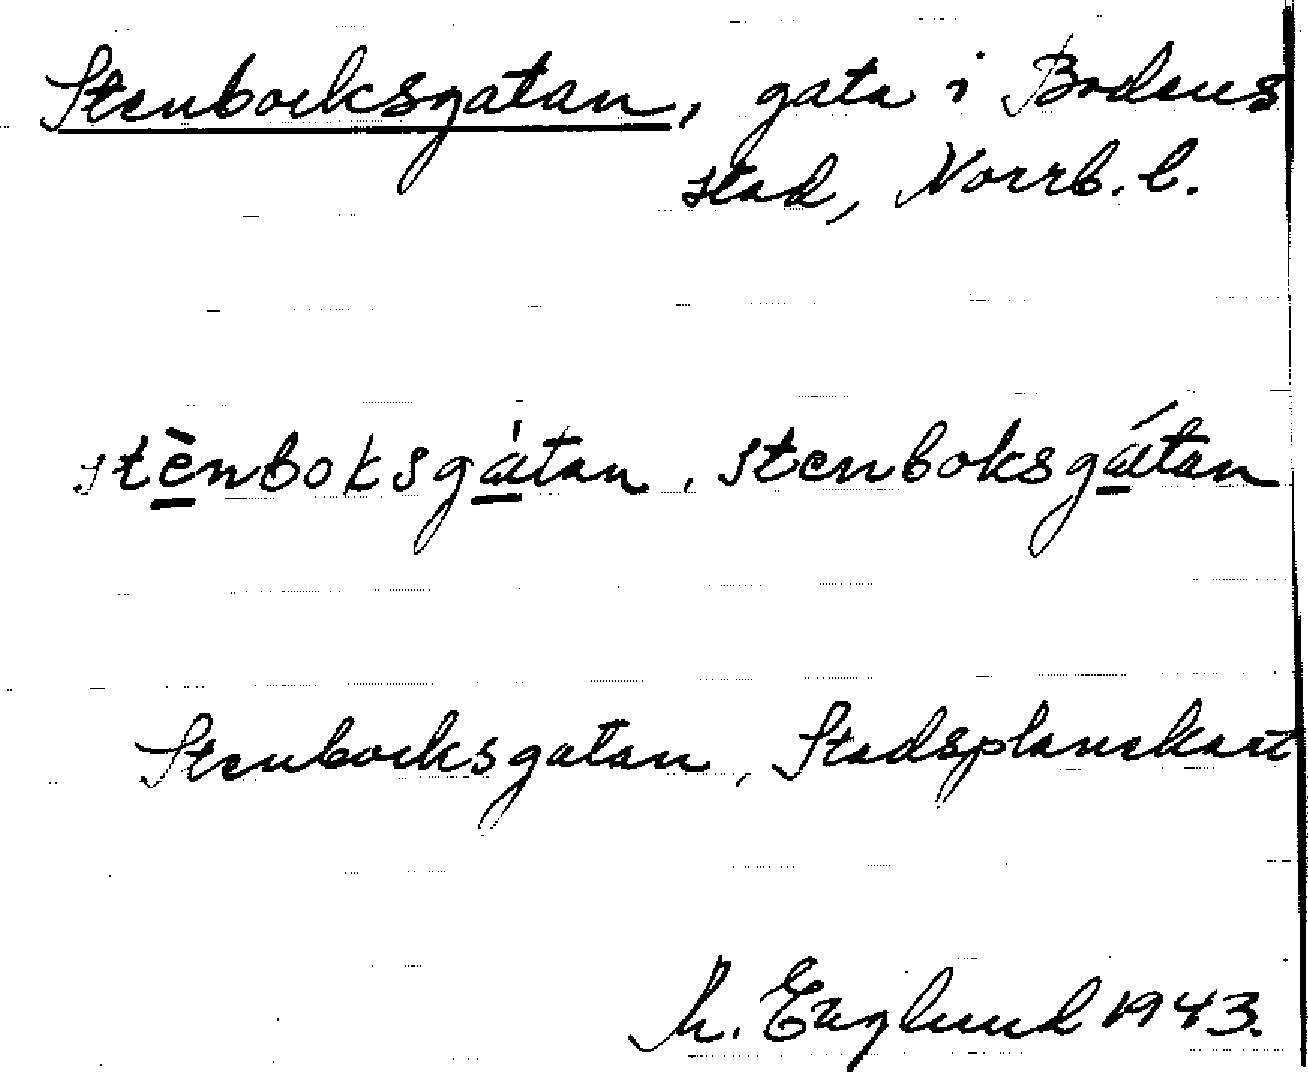 Stenbocksgatan, gata i Bodens
stad, Norrb. l.
stènboksgátan, stenboksgátan
Stenbocksgatan, Stadsplanekart
M. Englund 1943.